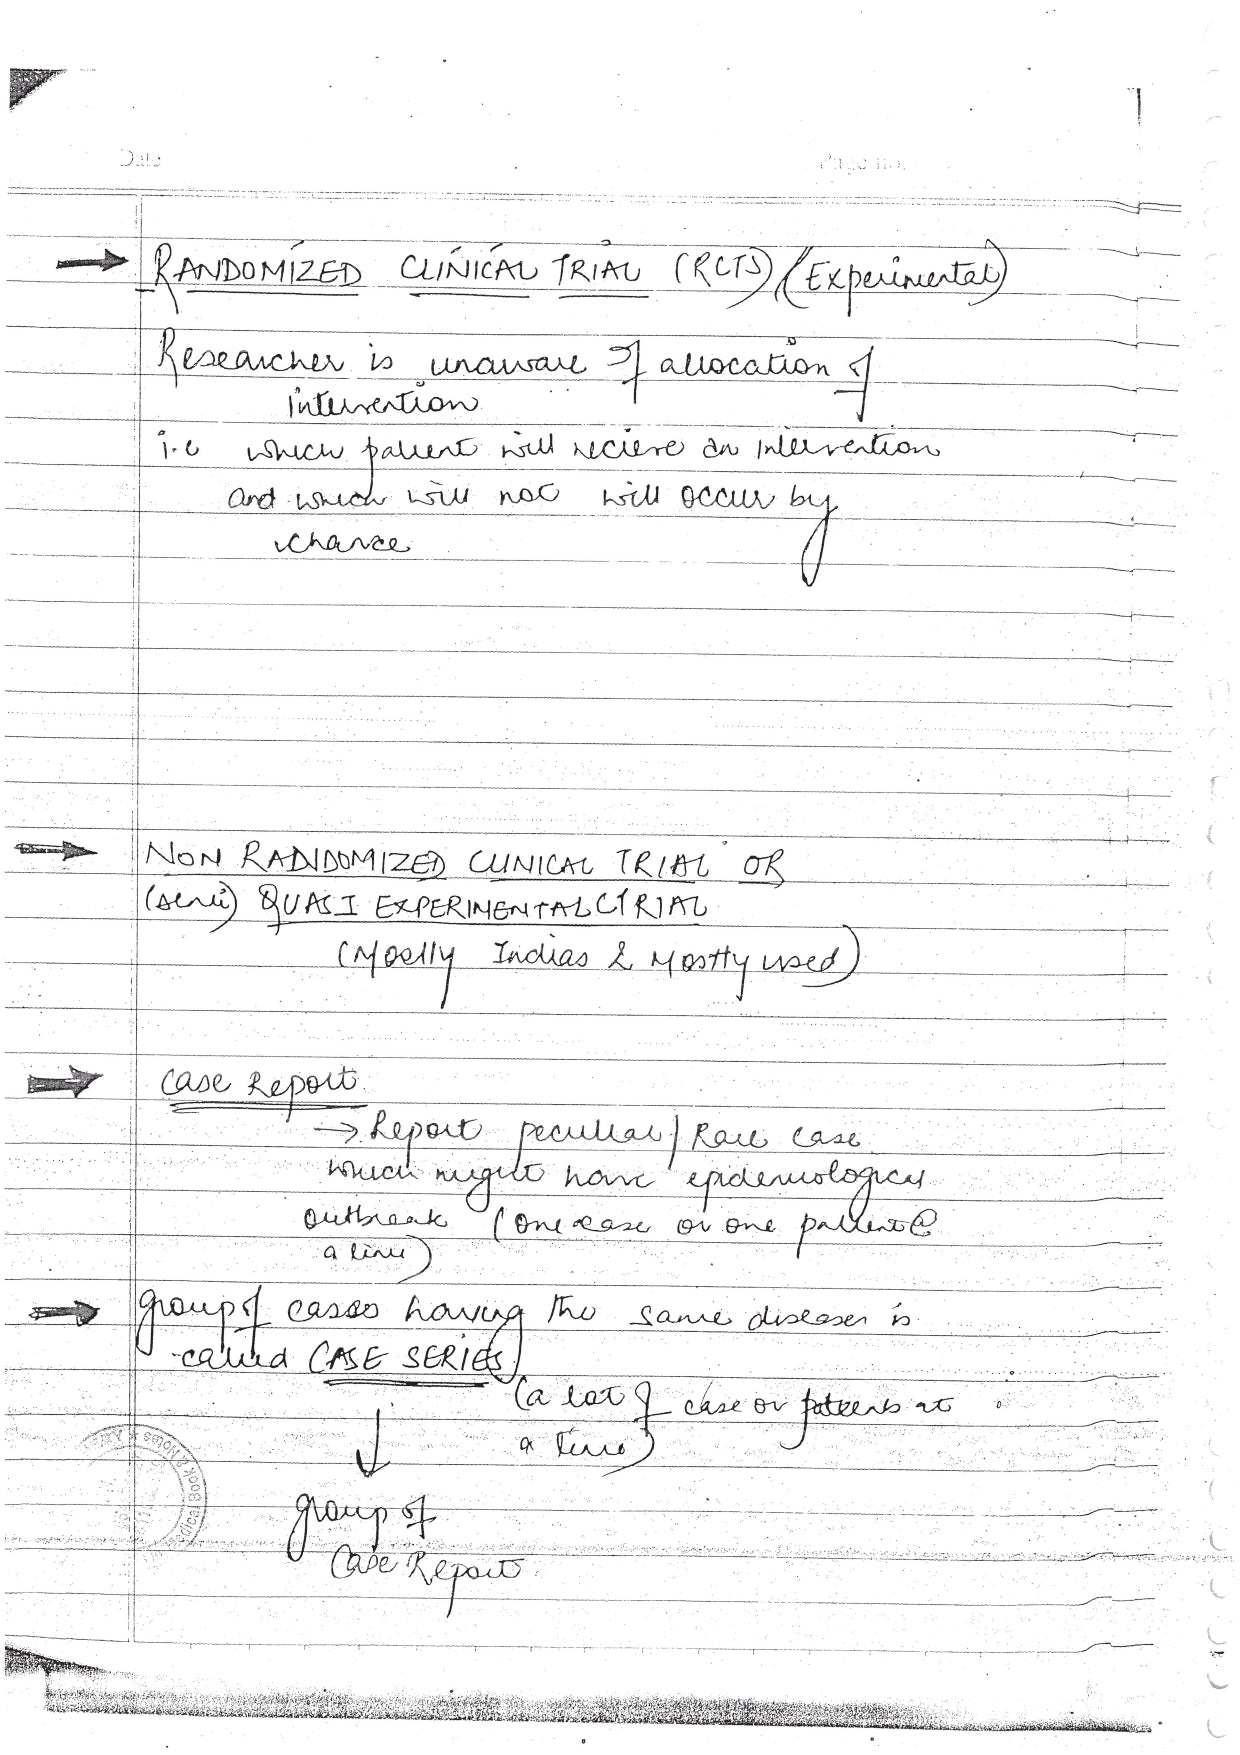 Date
Page no.
RANDOMIZED CLINICAL TRIAL (RCTS) / (Experimental)
Researcher is unaware of allocation of
intervention
i.e which patient will recieve an intervention
and which will not will occur by
chance
NON RANDOMIZED CLINICAL TRIAL OR
(semi) QUASI EXPERIMENTAL TRIAL
(Mostly Indias & Mostly used)
Case Report
→ Report peculiar / Rare case
which might have epidemiological
outbreak (one case or one patient @
a time)
group of cases having the same diseases is
called CASE SERIES
(a lot of case or patients at
a time)
↓
group of
Case Report